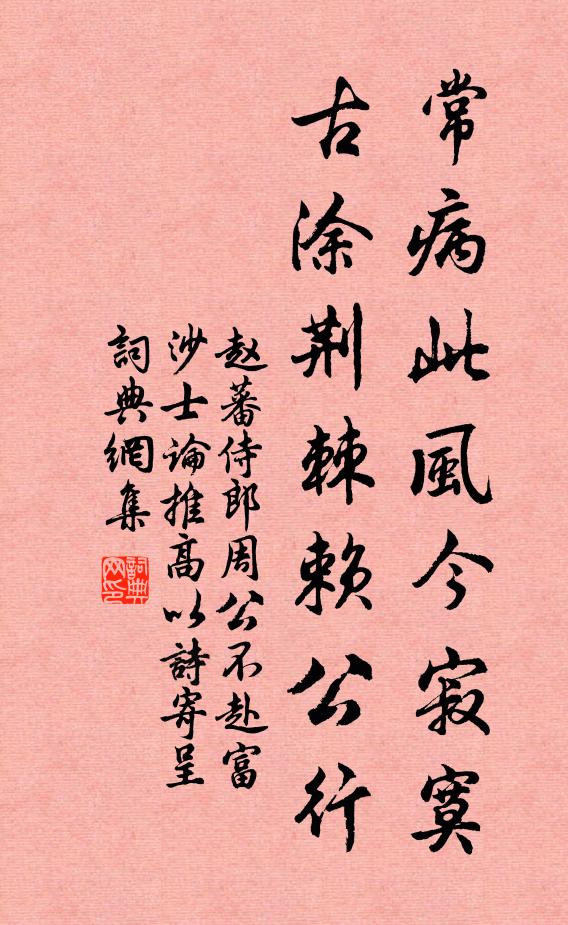 常病此風今寂寞
古涂荆棘賴公行
赵蕃侍郎周公不赴富
沙士论推高以詩寄呈
詞典網集
詞典网印